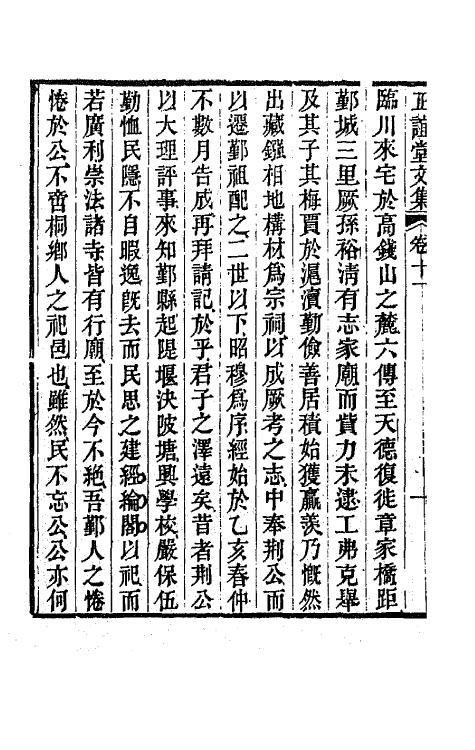 正誼堂文集 卷十一
臨川來宅於高錢山之麓六傳至天德復徙章家橋距
鄞城三里厥孫裕淸有志家廟而貲力未逮工弗克舉
及其子其梅賈於滬瀆勤儉善居積始獲贏羨乃慨然
出藏鏹相地構材爲宗祠以成厥考之志中奉荆公而
以遷鄞祖配之二世以下昭穆爲序經始於乙亥春仲
不數月吿成再拜請記於乎君子之澤遠矣昔者荆公
以大理評事來知鄞縣起隄堰決陂塘興學校嚴保伍
勤恤民隱不自暇逸旣去而民思之建經綸閣以祀而
若廣利崇法諸寺皆有行廟至於今不絶吾鄞人之惓
惓於公不啻桐鄕人之祀邑也雖然民不忘公公亦何